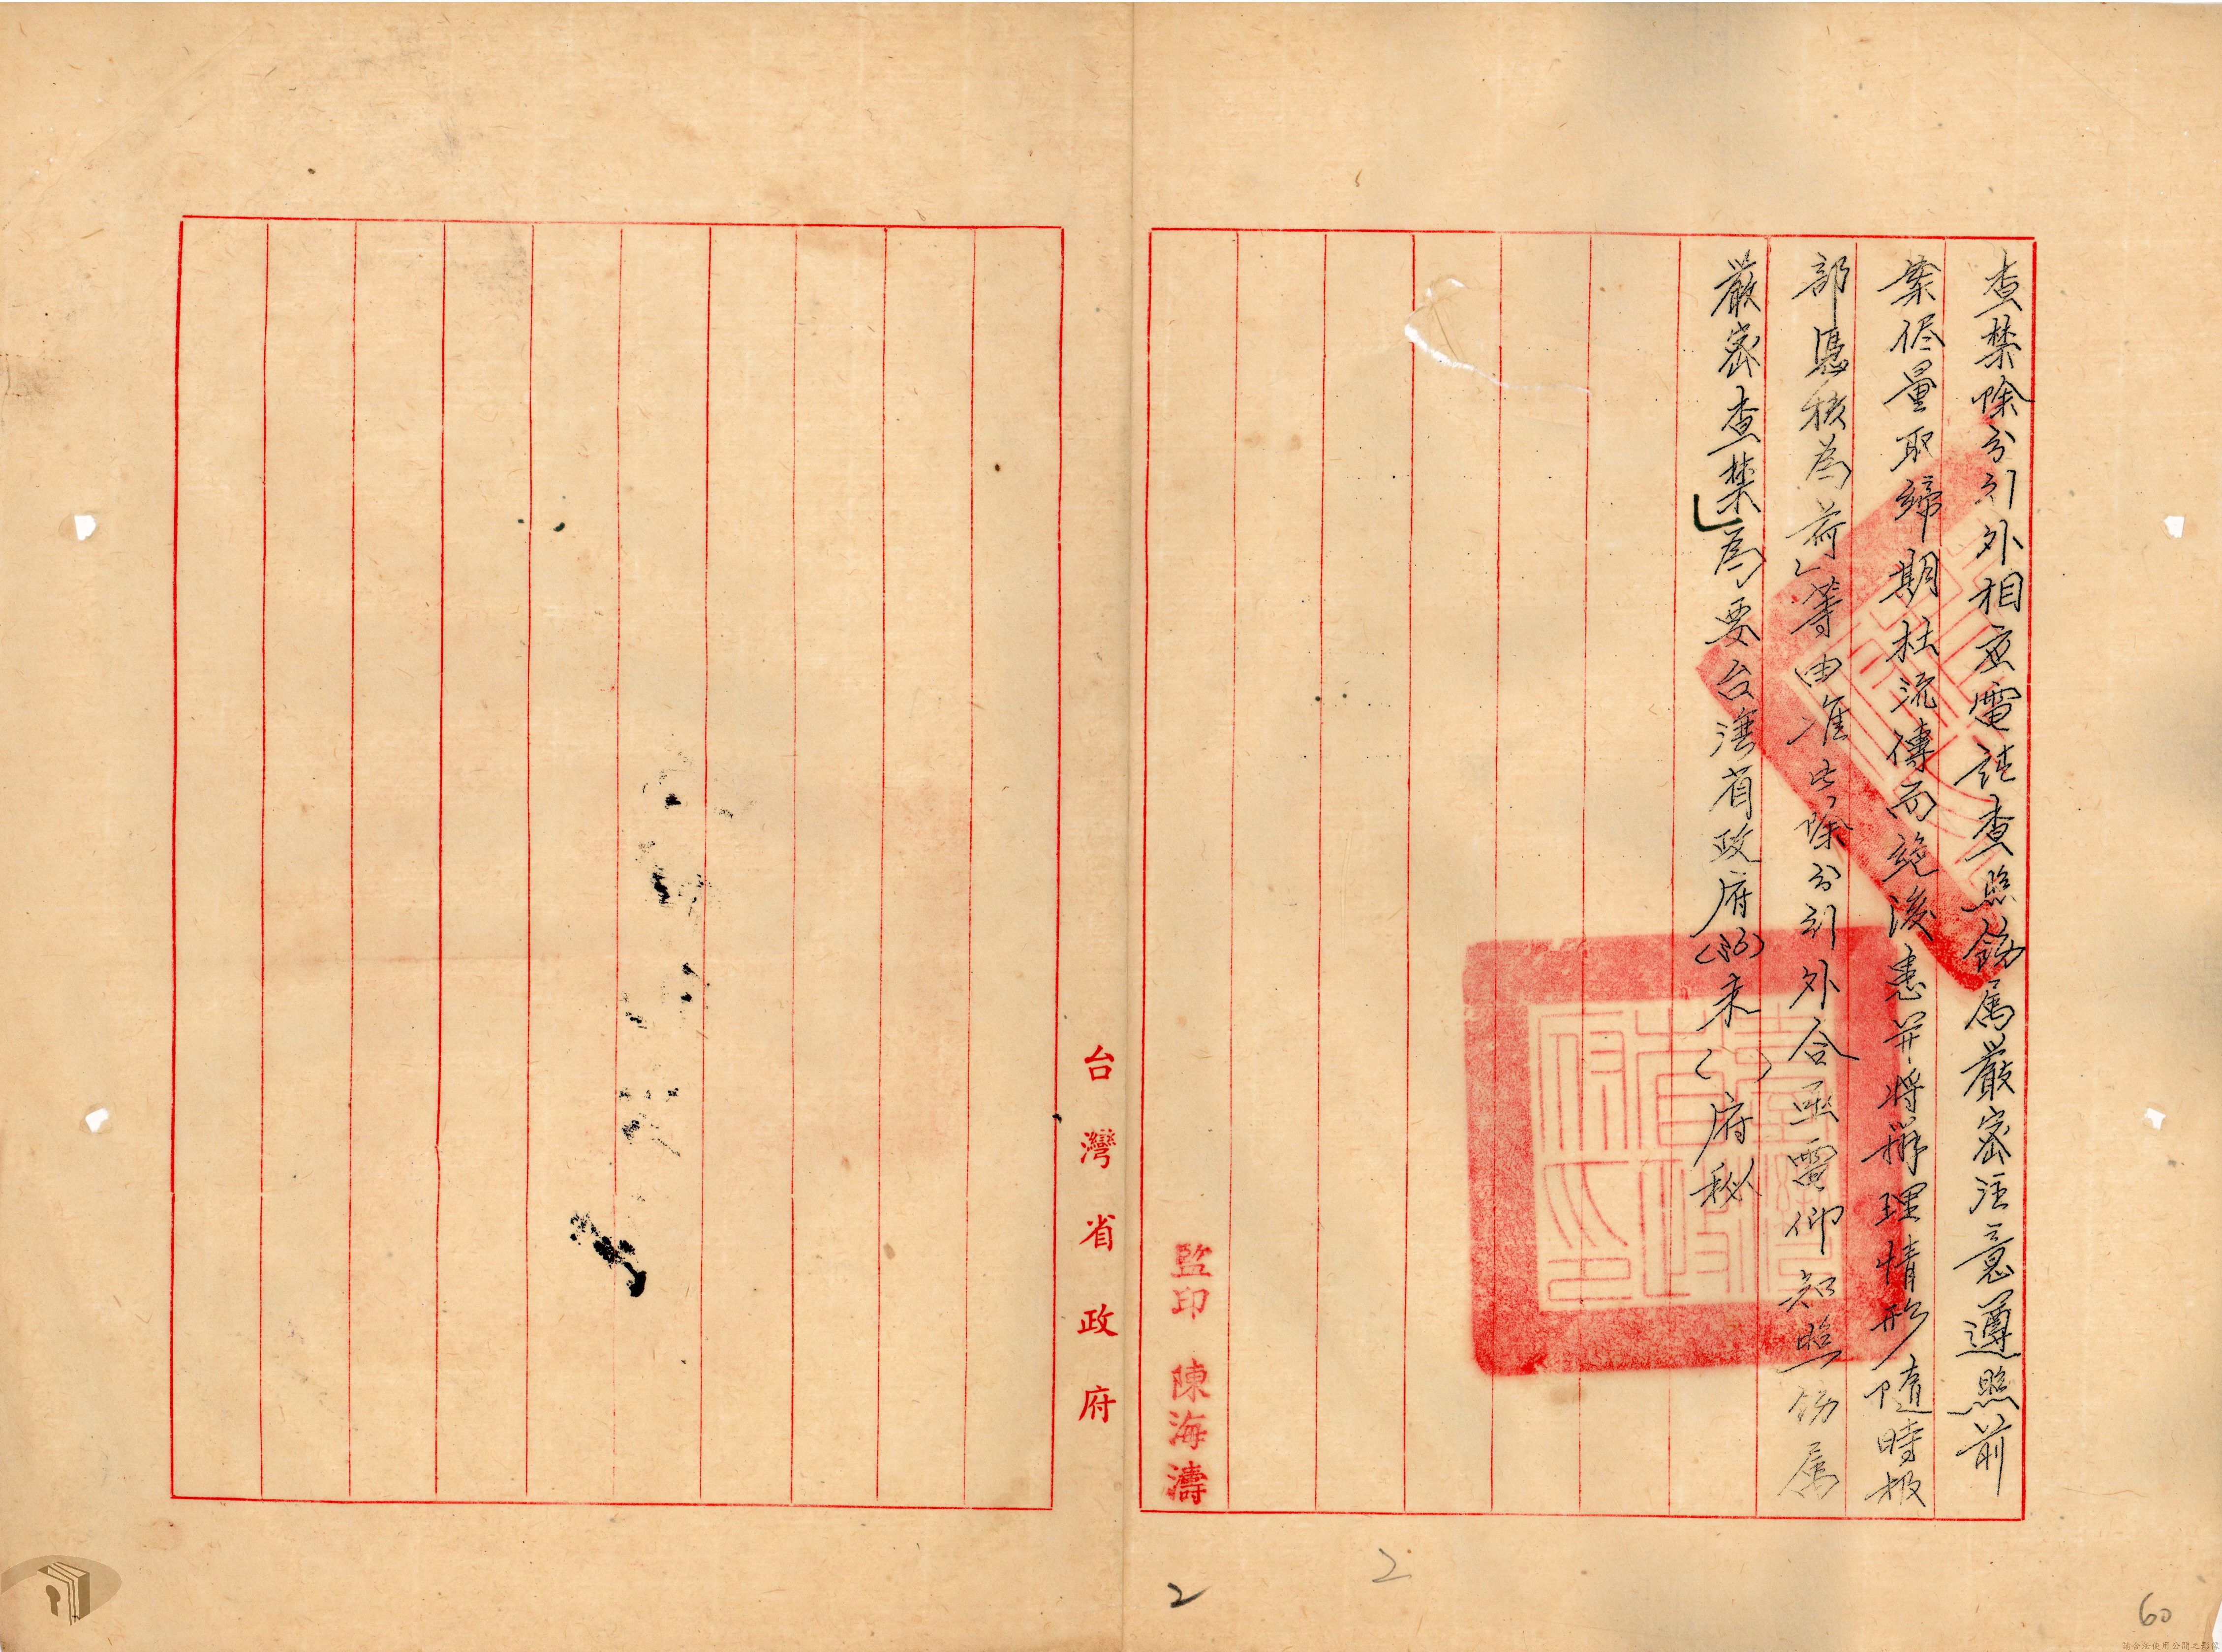 查禁除分引外相应電請查照飭属嚴密注意遵照前
案侭量取締期杜流傳而絶後患并将辦理情形随時报
部憑核為荷」等由准此除分引外合亟電仰知照飭属
嚴密查禁」為要台灣省政府(36)未( )府秘
監印 陳海濤
台灣省政府
2
2
60
請合法使用公開之影像